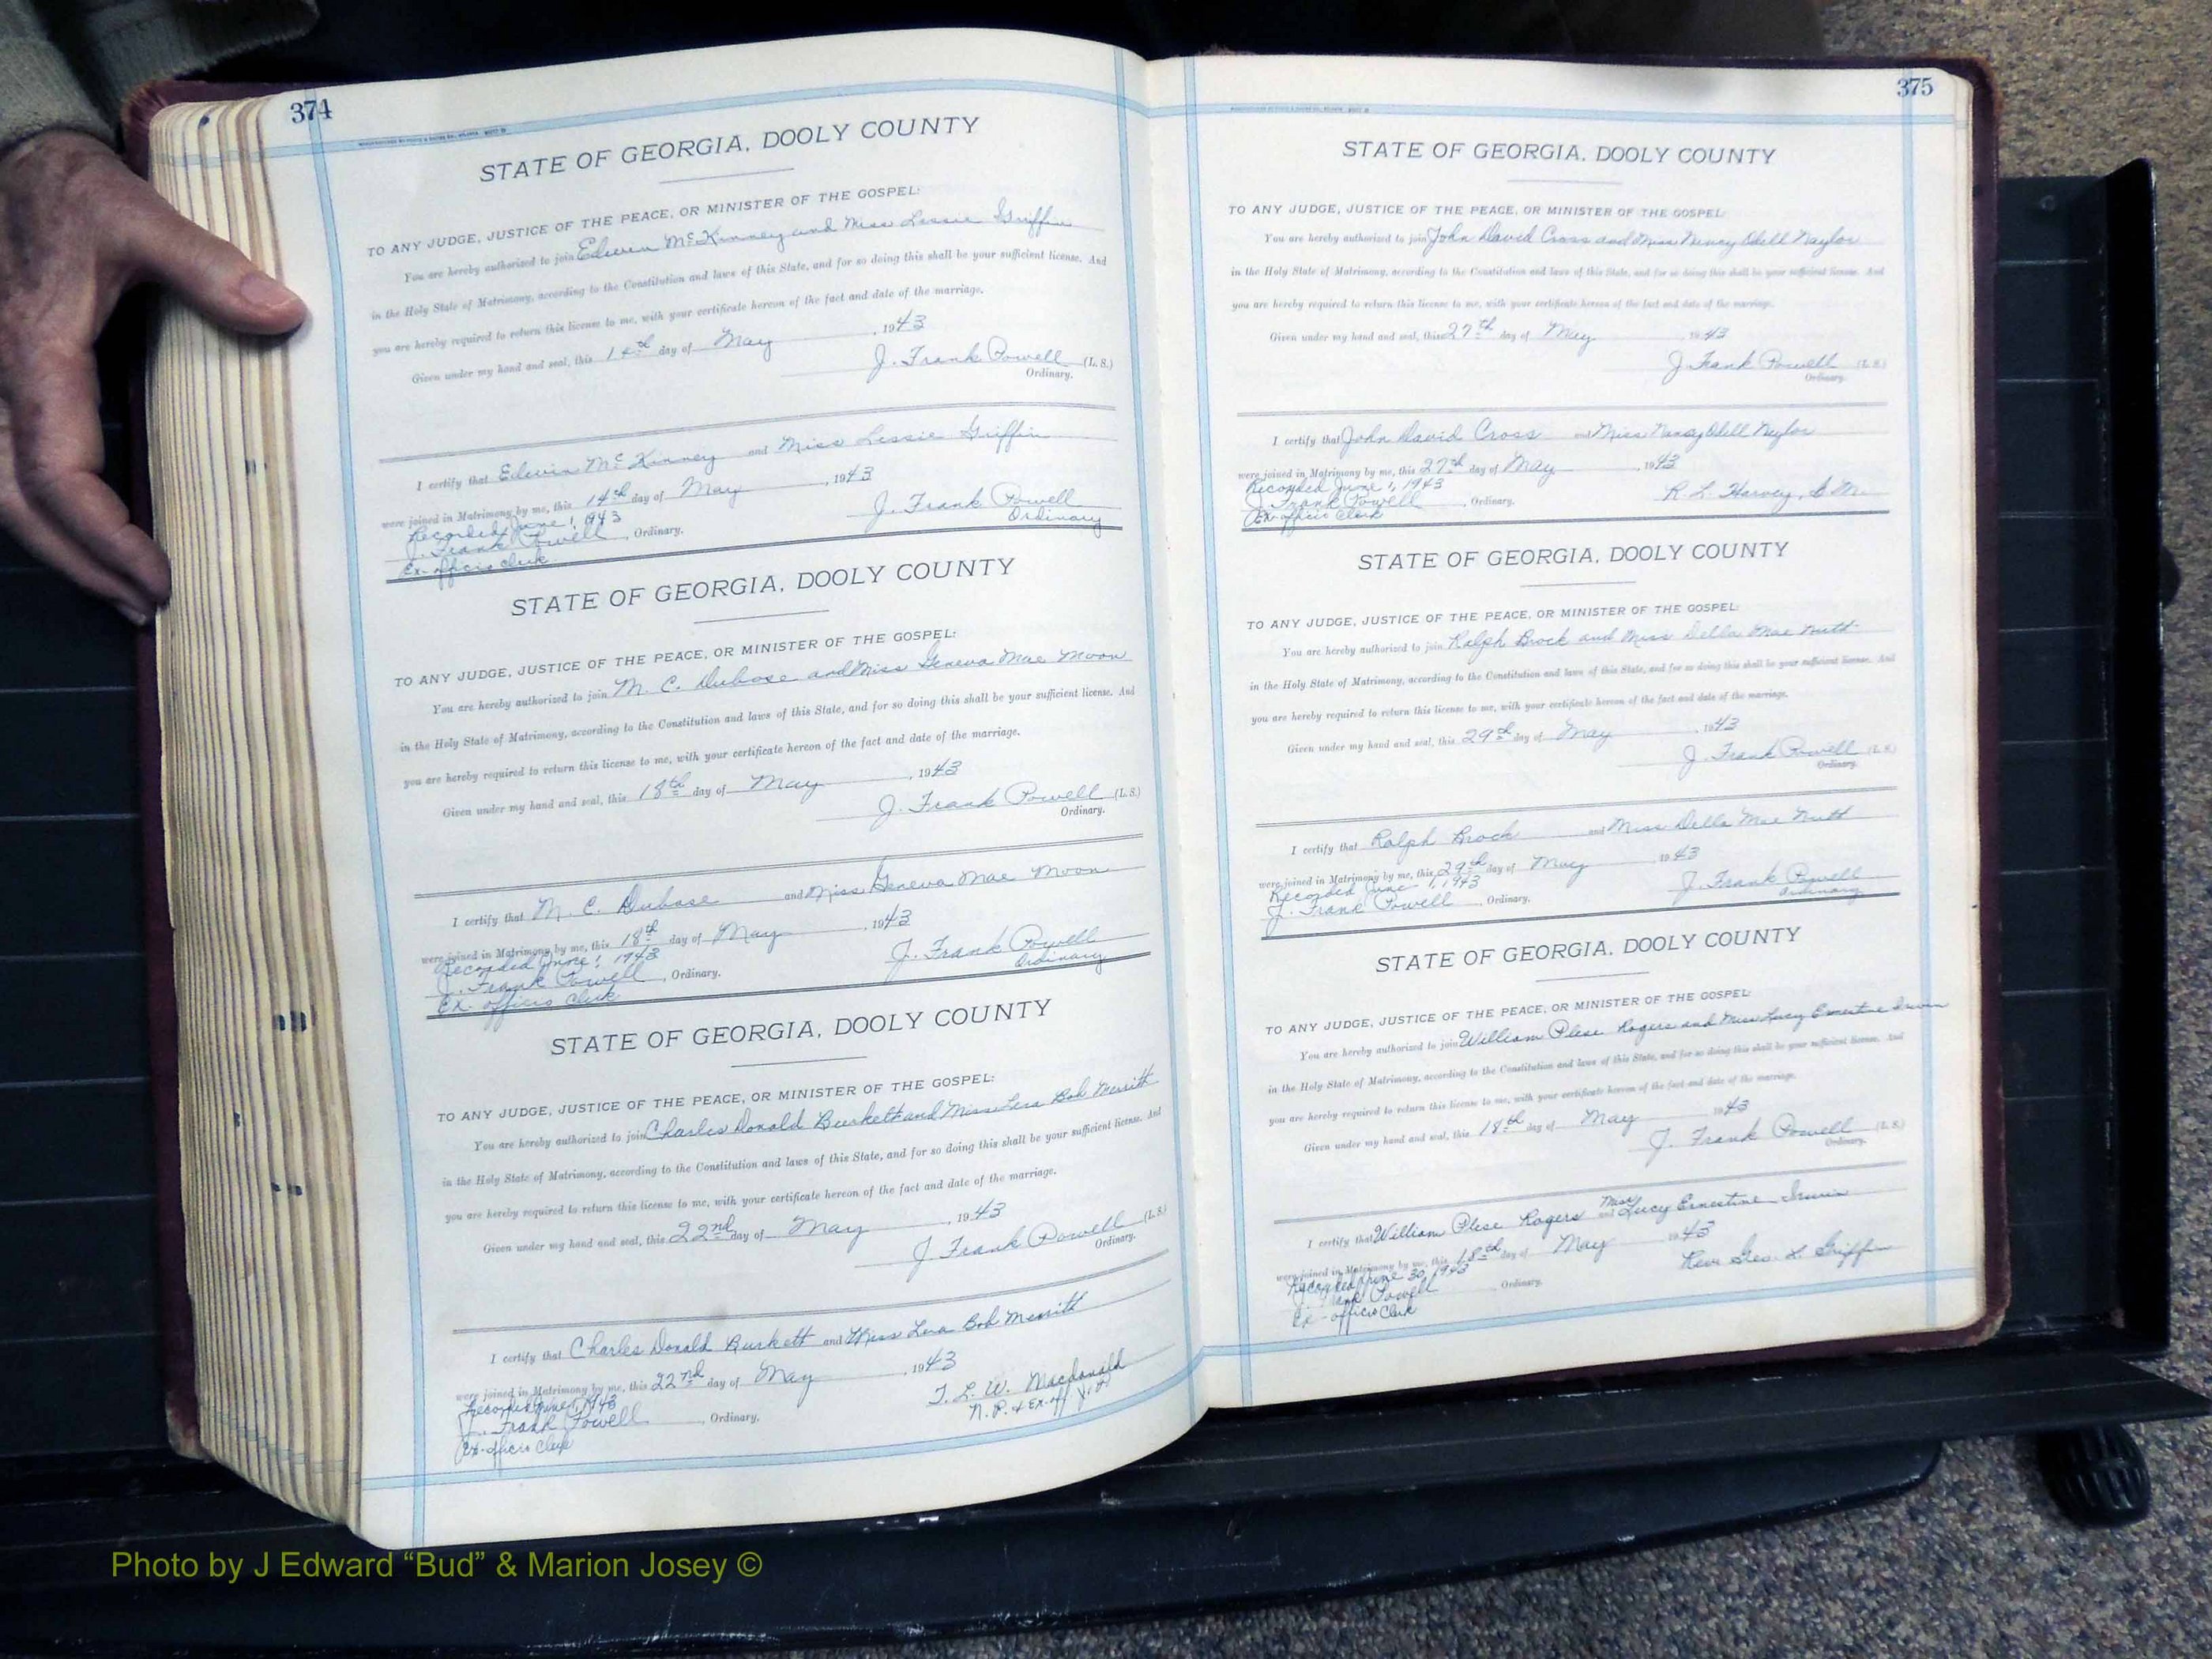 374
STATE OF GEORGIA, DOOLY COUNTY
TO ANY JUDGE, JUSTICE OF THE PEACE, OR MINISTER OF THE GOSPEL:
You are hereby authorized to join Edwin McKinney and Miss Lessie Griffin
in the Holy State of Matrimony, according to the Constitution and laws of this State, and for so doing this shall be your sufficient license. And
you are hereby required to return this license to me, with your certificate hereon of the fact and date of the marriage.
Given under my hand and seal, this 14th day of May, 1943
J. Frank Powell (L. S.)
Ordinary.
I certify that Edwin McKinney and Miss Lessie Griffin
were joined in Matrimony by me, this 14th day of May, 1943
Recorded June 1, 1943 J. Frank Powell
J. Frank Powell, Ordinary. Ordinary
Ex-officio Clerk
STATE OF GEORGIA, DOOLY COUNTY
TO ANY JUDGE, JUSTICE OF THE PEACE, OR MINISTER OF THE GOSPEL:
You are hereby authorized to join M. C. Dubose and Miss Geneva Mae Moon
in the Holy State of Matrimony, according to the Constitution and laws of this State, and for so doing this shall be your sufficient license. And
you are hereby required to return this license to me, with your certificate hereon of the fact and date of the marriage.
Given under my hand and seal, this 18th day of May, 1943
J. Frank Powell (L. S.)
Ordinary.
I certify that M. C. Dubose and Miss Geneva Mae Moon
were joined in Matrimony by me, this 18th day of May, 1943
Recorded June 1, 1943 J. Frank Powell
J. Frank Powell, Ordinary. Ordinary
Ex-officio Clerk
STATE OF GEORGIA, DOOLY COUNTY
TO ANY JUDGE, JUSTICE OF THE PEACE, OR MINISTER OF THE GOSPEL:
You are hereby authorized to join Charles Donald Burkett and Miss Lera Bob Merritt
in the Holy State of Matrimony, according to the Constitution and laws of this State, and for so doing this shall be your sufficient license. And
you are hereby required to return this license to me, with your certificate hereon of the fact and date of the marriage.
Given under my hand and seal, this 22nd day of May, 1943
J Frank Powell (L. S.)
Ordinary.
I certify that Charles Donald Burkett and Miss Lera Bob Merritt
were joined in Matrimony by me, this 22nd day of May, 1943
Recorded June 1, 1943 T. L. W. Macdonald
J. Frank Powell, Ordinary. N. P. & Ex-off J. P.
Ex-officio Clerk
375
STATE OF GEORGIA, DOOLY COUNTY
TO ANY JUDGE, JUSTICE OF THE PEACE, OR MINISTER OF THE GOSPEL:
You are hereby authorized to join John David Cross and Miss Nancy Odell Naylor
in the Holy State of Matrimony, according to the Constitution and laws of this State, and for so doing this shall be your sufficient license. And
you are hereby required to return this license to me, with your certificate hereon of the fact and date of the marriage.
Given under my hand and seal, this 27th day of May, 1943
J. Frank Powell (L. S.)
Ordinary.
I certify that John David Cross and Miss Nancy Odell Naylor
were joined in Matrimony by me, this 27th day of May, 1943
Recorded June 1, 1943 R. L. Harvey, G. M.
J. Frank Powell, Ordinary.
Ex-officio Clerk
STATE OF GEORGIA, DOOLY COUNTY
TO ANY JUDGE, JUSTICE OF THE PEACE, OR MINISTER OF THE GOSPEL:
You are hereby authorized to join Ralph Brock and Miss Della Mae Nutt
in the Holy State of Matrimony, according to the Constitution and laws of this State, and for so doing this shall be your sufficient license. And
you are hereby required to return this license to me, with your certificate hereon of the fact and date of the marriage.
Given under my hand and seal, this 29th day of May, 1943
J. Frank Powell (L. S.)
Ordinary.
I certify that Ralph Brock and Miss Della Mae Nutt
were joined in Matrimony by me, this 29th day of May 1943
Recorded June 1, 1943 J. Frank Powell
J. Frank Powell, Ordinary. Ordinary
STATE OF GEORGIA, DOOLY COUNTY
TO ANY JUDGE, JUSTICE OF THE PEACE, OR MINISTER OF THE GOSPEL:
You are hereby authorized to join William Plese Rogers and Miss Lucy Ernestine Irwin
in the Holy State of Matrimony, according to the Constitution and laws of this State, and for so doing this shall be your sufficient license. And
you are hereby required to return this license to me, with your certificate hereon of the fact and date of the marriage.
Given under my hand and seal, this 18th day of May 1943
J. Frank Powell (L. S.)
Ordinary.
I certify that William Plese Rogers and Miss Lucy Ernestine Irwin
were joined in Matrimony by me, this 18th day of May 1943
Recorded June 30, 1943 Rev. Geo. L. Griffin
J. Frank Powell, Ordinary.
Ex-officio Clerk
Photo by J Edward “Bud” & Marion Josey ©